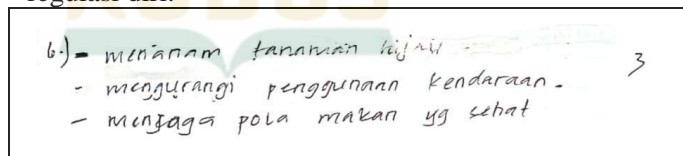 regulasi diri.
6.) - menanam tanaman hijau
- mengurangi penggunaan kendaraan.
- menjaga pola makan yg sehat
3